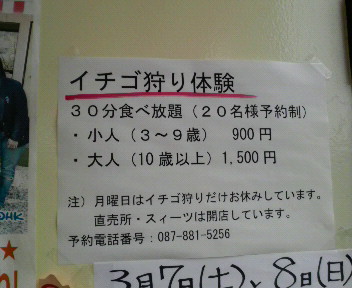 イチゴ狩り体験
30分食べ放題（20名様予約制）
・小人（3～9歳） 900円
・大人（10歳以上）1,500円
注）月曜日はイチゴ狩りだけお休みしています。
直売所・スィーツは開店しています。
予約電話番号：087-881-5256
3月7日(土)と8日(日)